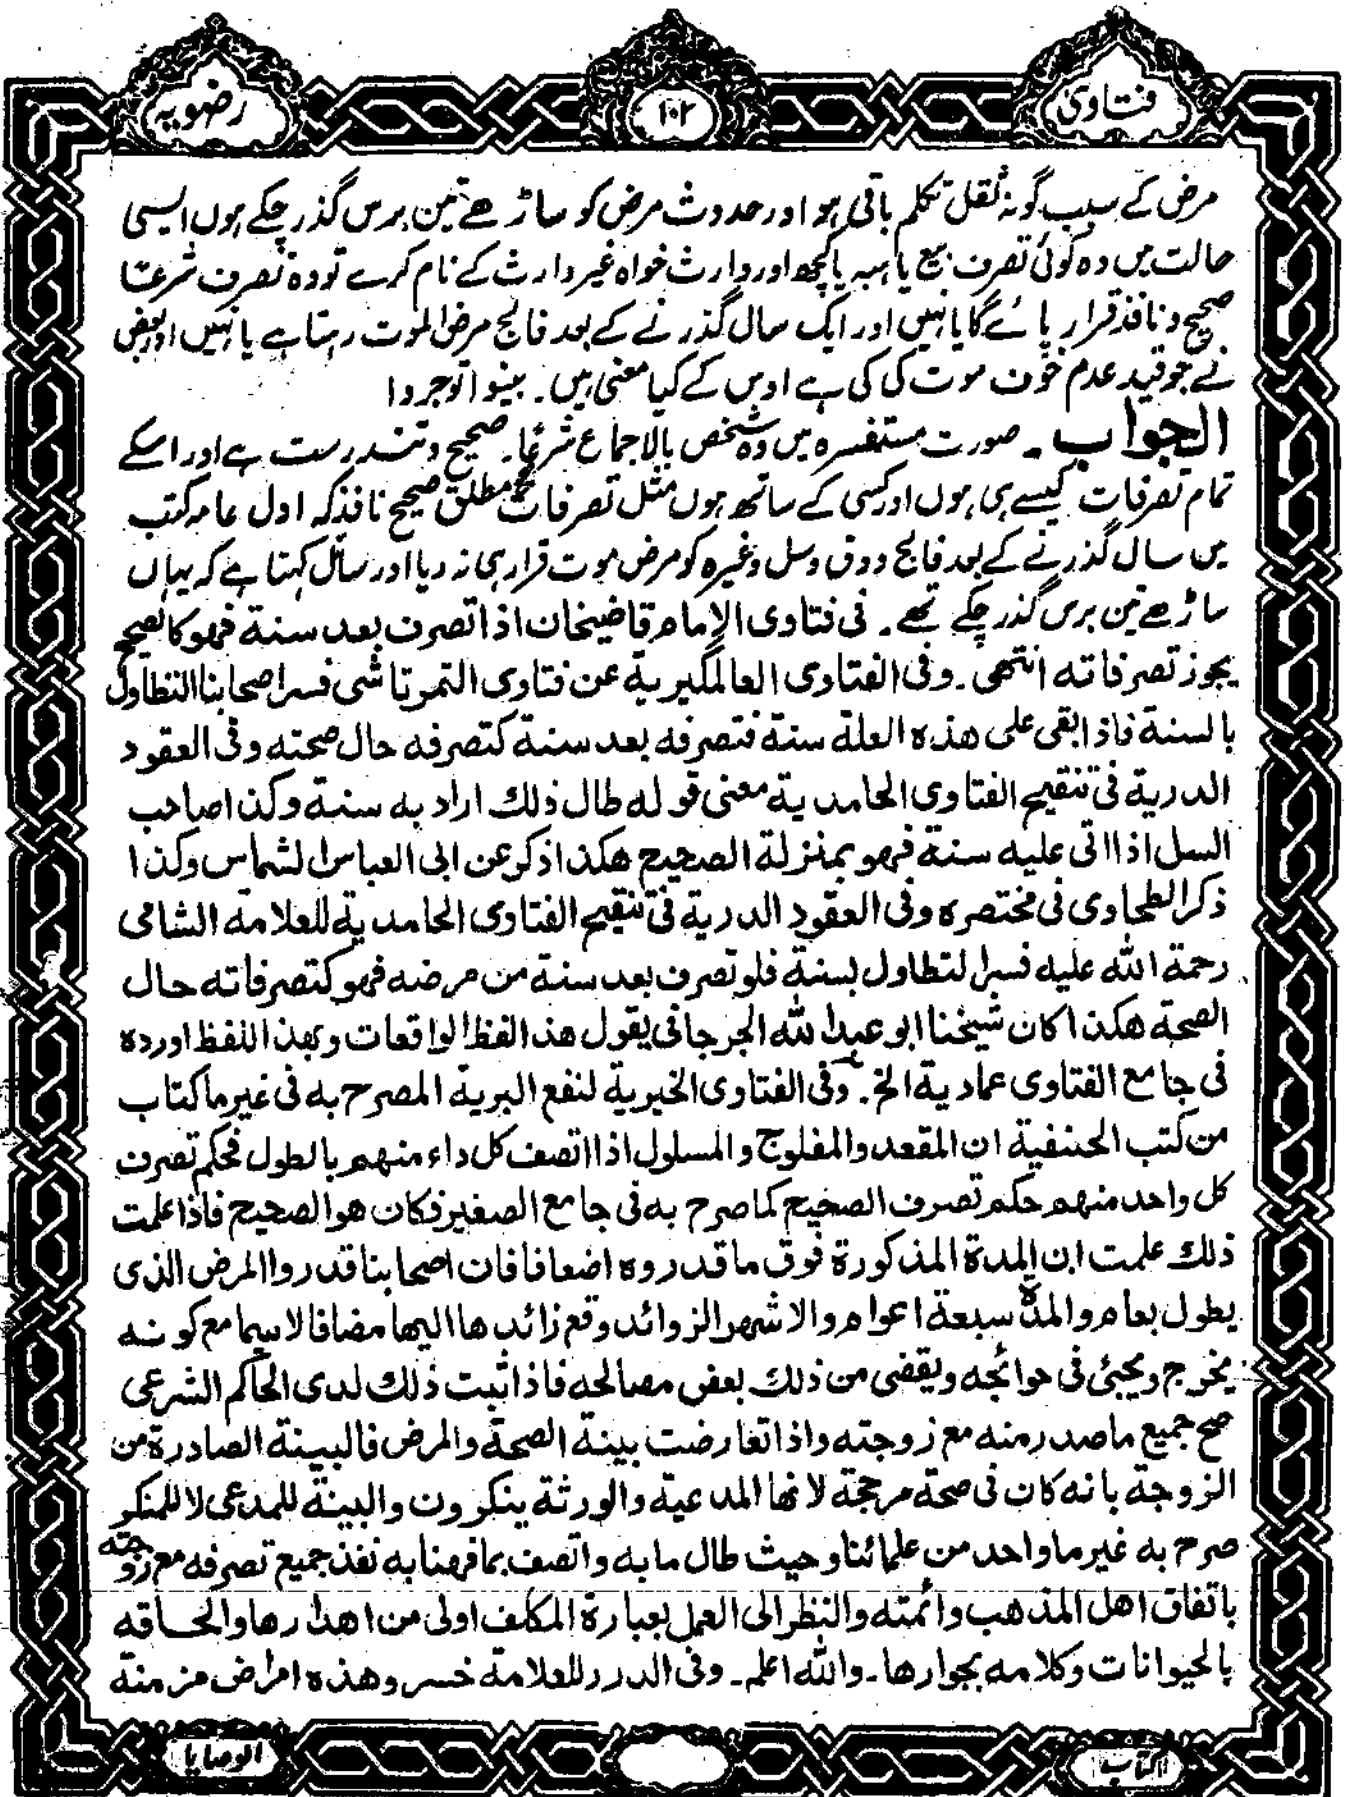 فتاویٰ
۱۰۲
رضویہ
مرض کے سبب گونہ ثقل تکلم باقی ہو اور حدوث مرض کو ساڑھے تین برس گذر چکے ہوں ایسی
حالت میں وہ کوئی تصرف بیع یا ہبہ یا کچھ اور وارث خواہ غیر وارث کے نام کرے تو وہ تصرف شرعًا
صحیح و نافذ قرار پائے گا یا نہیں اور ایک سال گذرنے کے بعد فالج مرض الموت رہتا ہے یا نہیں اور بعض
نے جو قید عدم خوف موت کی کی ہے اوس کے کیا معنی ہیں۔ بینوا توجروا
الجواب ۔ صورت مستفسرہ میں وہ شخص بالاجماع شرعًا۔ صحیح و تندرست ہے اور اسکے
تمام تصرفات کیسے ہی ہوں اور کسی کے ساتھ ہوں مثل تصرفات صحیح مطلق صحیح نافذ کہ اول عامہ کتب
میں سال گذرنے کے بعد فالج و دق و سل وغیرہ کو مرض موت قرار ہی نہ دیا اور سائل کہتا ہے کہ یہاں
ساڑھے تین برس گذر چکے تھے۔ فی فتاوی الامام قاضیخان اذا تصرف بعد سنة فهو كالصحيح
يجوز تصرفاته انتهى۔ وفی الفتاوی العالمگیرية عن فتاوی التمرتاشی فسر اصحابنا التطاول
بالسنة فاذا بقی علی هذه العلة سنة فتصرفه بعد سنة كتصرفه حال صحته وفی العقود
الدرية فی تنقیح الفتاوی الحامدية معنی قوله طال ذلك اراد به سنة وكذا صاحب
السل اذا اتی علیه سنة فهو بمنزلة الصحیح هكذا ذكر عن ابی العباس الشماس وكذا
ذكر الطحاوی فی مختصره وفی العقود الدرية فی تنقیح الفتاوی الحامدية للعلامة الشامی
رحمة الله علیه فسر التطاول بسنة فلو تصرف بعد سنة من مرضه فهو كتصرفاته حال
الصحة هكذا كان شیخنا ابو عبد الله الجرجانی یقول هذا لفظ الواقعات وبهذا اللفظ اورده
فی جامع الفتاوی عمادية الخ۔ وفی الفتاوی الخیرية لنفع البرية المصرح به فی غیر ما كتاب
من كتب الحنفية ان المقعد والمفلوج والمسلول اذا اتصف كل داء منهم بالطول فحكم تصرف
كل واحد منهم حكم تصرف الصحیح كما صرح به فی جامع الصغیر فكان هو الصحیح فاذا علمت
ذلك علمت ان المدة المذكورة فوق ما قدروه اضعافا فان اصحابنا قدروا المرض الذی
یطول بعام والمدة سبعة اعوام والاشهر الزوائد وقع زائدها الیها مضافا لا سیما مع كونه
یخرج ویجیئ فی حوائجه ویقضی من ذلك بعض مصالحه فاذا ثبت ذلك لدی الحاكم الشرعی
صح جمیع ما صدر منه مع زوجته واذا تعارضت بینة الصحة والمرض فالبینة الصادرة من
الزوجة بانه كان فی صحة مرجحة لانها المدعية والورثة ینكرون والبینة للمدعی لا للمنكر
صرح به غیر ما واحد من علمائنا وحیث طال ما به واتصف بما فهنا به نفذ جمیع تصرفه مع زوجته
باتفاق اهل المذهب وائمته والنظر الی العمل بعبارة المكلف اولی من اهدارها والحاقه
بالحیوانات وكلامه بجوارها۔ والله اعلم۔ وفی الدرر للعلامة خسرو هذه امراض مزمنة
الکتاب
الوصایا